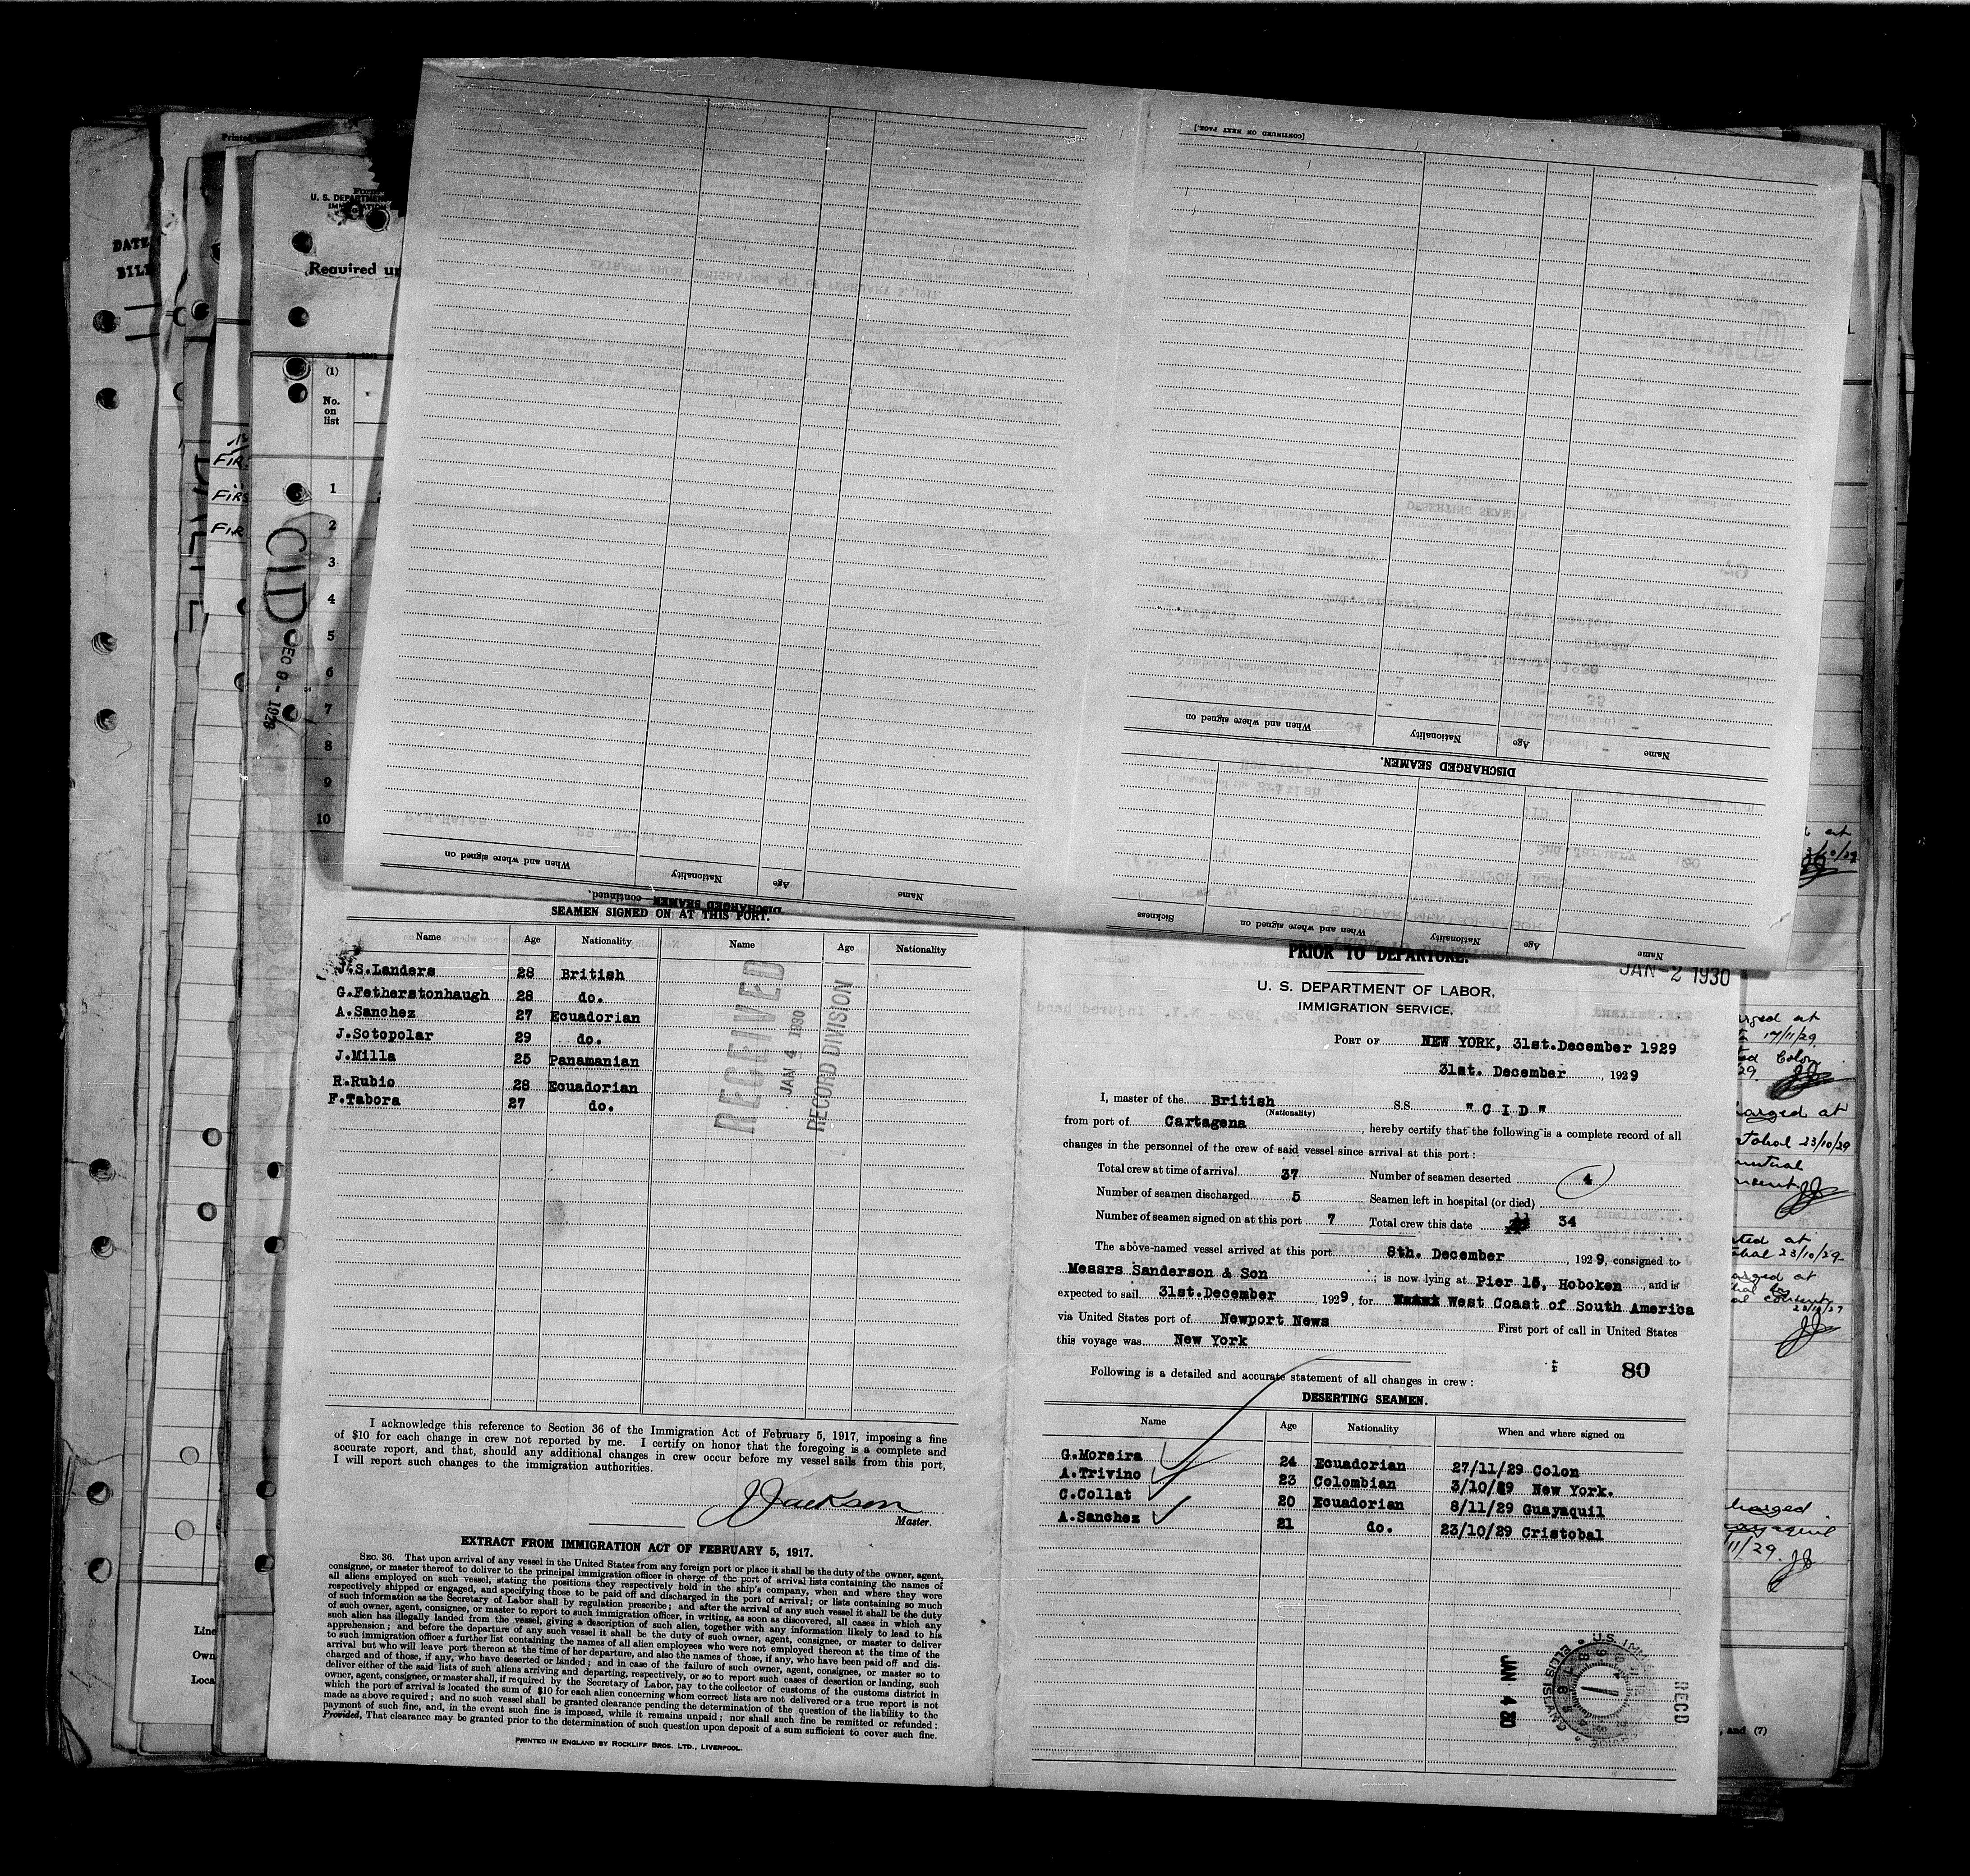 SEAMEN SIGNED ON AT THIS PORT.
Name Age Nationality Name Age Nationality
J.S.Landers 28 British
G.Fetherstonhaugh 28 do.
A.Sanchez 27 Ecuadorian
J.Sotopolar 29 do.
J.Milla 25 Panamanian
R.Rubio 28 Ecuadorian
F.Tabora 27 do.
RECEIVED
JAN 4 1930
RECORD DIVISION
I acknowledge this reference to Section 36 of the Immigration Act of February 5, 1917, imposing a fine
of $10 for each change in crew not reported by me. I certify on honor that the foregoing is a complete and
accurate report, and that, should any additional changes in crew occur before my vessel sails from this port,
I will report such changes to the immigration authorities.
J Jackson
Master.
EXTRACT FROM IMMIGRATION ACT OF FEBRUARY 5, 1917.
SEC. 36. That upon arrival of any vessel in the United States from any foreign port or place it shall be the duty of the owner, agent,
consignee, or master thereof to deliver to the principal immigration officer in charge of the port of arrival lists containing the names of
all aliens employed on such vessel, stating the positions they respectively hold in the ship's company, when and where they were
respectively shipped or engaged, and specifying those to be paid off and discharged in the port of arrival; or lists containing so much
of such information as the Secretary of Labor shall by regulation prescribe; and after the arrival of any such vessel it shall be the duty
of such owner, agent, consignee, or master to report to such immigration officer, in writing, as soon as discovered, all cases in which any
such alien has illegally landed from the vessel, giving a description of such alien, together with any information likely to lead to his
apprehension; and before the departure of any such vessel it shall be the duty of such owner, agent, consignee, or master to deliver
to such immigration officer a further list containing the names of all alien employees who were not employed thereon at the time of the
arrival but who will leave port thereon at the time of her departure, and also the names of those, if any, who have been paid off and dis-
charged and of those, if any, who have deserted or landed; and in case of the failure of such owner, agent, consignee, or master so to
deliver either of the said lists of such aliens arriving and departing, respectively, or so to report such cases of desertion or landing, such
owner, agent, consignee, or master shall, if required by the Secretary of Labor, pay to the collector of customs of the customs district in
which the port of arrival is located the sum of $10 for each alien concerning whom correct lists are not delivered or a true report is not
made as above required; and no such vessel shall be granted clearance pending the determination of the question of the liability to the
payment of such fine, and, in the event such fine is imposed, while it remains unpaid; nor shall such fine be remitted or refunded:
Provided, That clearance may be granted prior to the determination of such question upon deposit of a sum sufficient to cover such fine.
PRINTED IN ENGLAND BY ROCKLIFF BROS. LTD., LIVERPOOL.
PRIOR TO DEPARTURE.
JAN -2 1930
U. S. DEPARTMENT OF LABOR,
IMMIGRATION SERVICE,
PORT OF NEW YORK, 31st.December 1929
31st. December, 1929
I, master of the British S.S. "C I D"
(Nationality)
from port of Cartagena, hereby certify that the following is a complete record of all
changes in the personnel of the crew of said vessel since arrival at this port:
Total crew at time of arrival 37 Number of seamen deserted 4
Number of seamen discharged 5 Seamen left in hospital (or died)
Number of seamen signed on at this port 7 Total crew this date 34
The above-named vessel arrived at this port 8th. December, 1929, consigned to
Messrs Sanderson & Son; is now lying at Pier 15, Hoboken, and is
expected to sail 31st.December, 1929, for West Coast of South America
via United States port of Newport News First port of call in United States
this voyage was New York
80
Following is a detailed and accurate statement of all changes in crew:
DESERTING SEAMEN.
Name Age Nationality When and where signed on
G.Moreira 24 Ecuadorian 27/11/29 Colon
A.Trivino 23 Colombian 3/10/29 New York.
C.Collat 20 Ecuadorian 8/11/29 Guayaquil
A.Sanchez 21 do. 23/10/29 Cristobal
JAN 4 30
RECD
ELLIS ISLAND
U.S. IMM
[CONTINUED ON NEXT PAGE.]
DISCHARGED SEAMEN.
Name Age Nationality When and where signed on
Name Age Nationality When and where signed on Sickness
DISCHARGED SEAMEN continued.
Name Age Nationality When and where signed on
DATE
U. S. DEPARTMEN
Required u
(1)
No.
on
list
1
2
3
4
5
6
7
8
9
10
CID
DEC 9 - 1929
FIRS
FIRS
FIR
Line
Own
Loca
17/11/29
Colon
29.
23/10/29
23/10/29
11/29.
and (7)